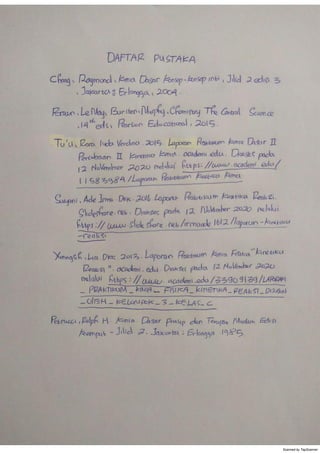 DAFTAR PUSTAKA
Chang, Raymond. Kimia Dasar Konsep-konsep inti, Jilid 2 edisi 3
. Jakarta : Erlangga, 2004.
LeMay, Bursten. Murphy. Chemistry The Central Science
. 14th eds. Pearson Educational. 2015.
Tu'u, Rosa Indo 2015. Laporan Praktikum Kimia Dasar II
Percobaan II Kinetika Kimia. academi edu. Diakses pada
12 November 2020 melalui https://www.academi.edu/
11583984/Laporan Praktikum Kinetika Kimia
Suryani, Ade Irma Dkk. 2016 Laporan Praktikum Kinetika Reaksi.
Slideshare. net. Diakses pada 12 November 2020 melalui
https://www.slideshare.net/ 1612/laporan-kinetika
-reaksi
Lia Dkk. 2013. Laporan Praktikum Kimia Fisika "Kinetika
Reaksi". academi.edu Diakses pada 12 November 2020
melalui https://www.academi.edu/33903139/LAPORAN
_ PRAKTIKUM _ KIMIA _ FISIKA _ KINETIKA _ REAKSI _ DISUSUN
_ OLEH _ KELOMPOK _ 3 _ KELAS _ C
Petrucci, Ralph H. Kimia Dasar Prinsip dan Terapan Modern Edisi
Keempat - Jilid 2. Jakarta : Erlangga 1985.
Scanned by TapScanner